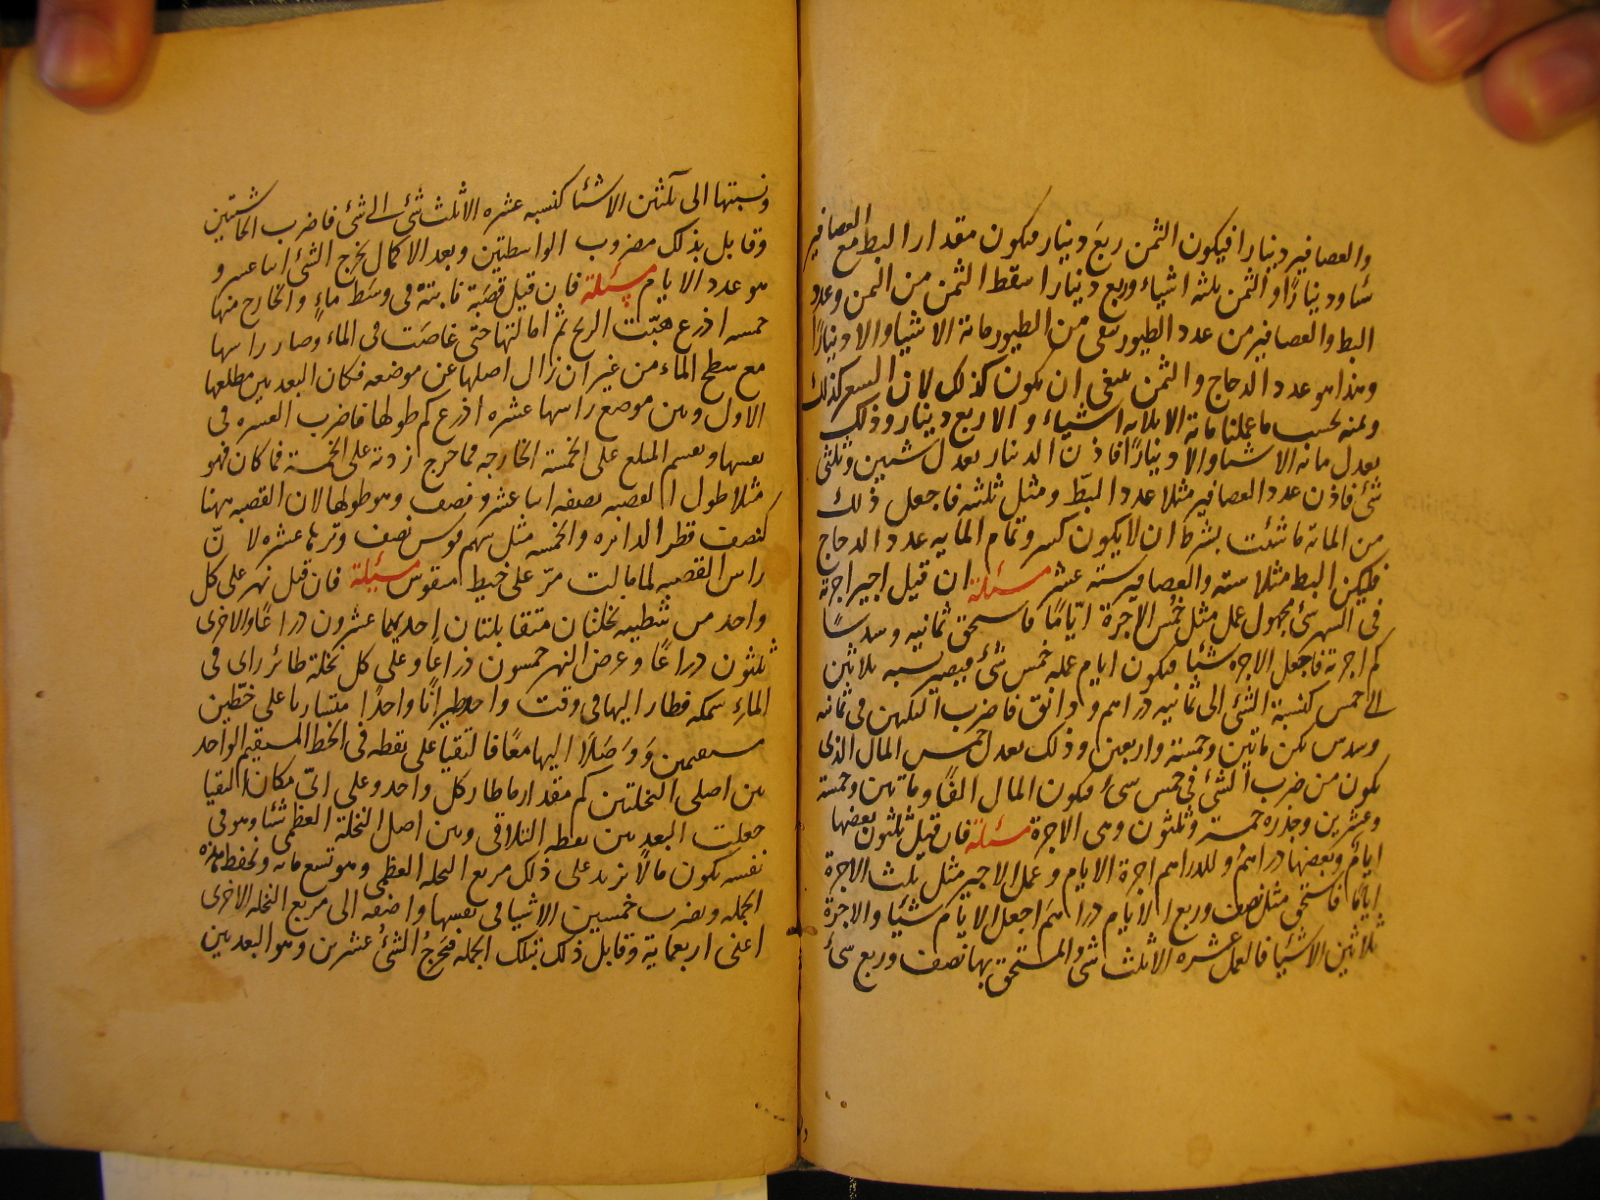 والعصافير دينارا فيكون الثمن ربع دينار فيكون مقدار البط مع العصافير
شيئا ودينارًا والثمن ثلثة اشياء وربع دينار اسقط الثمن من الثمن وعدد
البط والعصافير من عدد الطيور يبقى من الطيور مائة الا شيئا والا دينارًا
وهذا هو عدد الدجاج والثمن ينبغى ان يكون كذلك لان السعر كذلك
وثمنه بحسب ما عملنا مائة الا ثلاثة اشياء والا ربع دينار وذلك
يعدل مائة الا شيئا والا دينارًا فاذن الدينار يعدل شيئين وثلثى
شئ فاذن عدد العصافير مثلا عدد البطّ ومثل ثلثيه فاجعل ذلك
من المائة ما شئت بشرط ان لا يكون كسر وتمام المائة عدد الدجاج
فليكن البط مثلا ستة والعصافير ستة عشر مسئلة ان قيل اجير اجرته
فى الشهر شئ مجهول عمل مثل خمس الاجرة ايّامًا فاستحق ثمانية وسدسًا
كم اجرته فاجعل الاجرة شيئا فيكون ايام عمله خمس شئ فيصير نسبة ثلاثين
الى خمس كنسبة الشئ الى ثمانية دراهم ودانق فاضرب الثلثين فى ثمانية
وسدس يكن مائتين وخمسة واربعين وذلك يعدل خمس المال الذى
يكون من ضرب الشئ فى خمس شئ فيكون المال الفًا ومائتين وخمسة
وعشرين وجذره خمسة وثلثون وهى الاجرة مسئلة فان قيل ثلثون بعضها
ايام وبعضها دراهم وللدراهم اجرة الايام وعمل الاجير مثل ثلث الاجرة
ايامًا فاستحق مثل نصف وربع الايام دراهم اجعل الايام شيئا والاجرة
ثلاثين الا شيئا فالعمل عشرة الا ثلث شئ والمستحق بها نصف وربع شئ
ونسبتها الى ثلثين الا شيئا كنسبة عشرة الا ثلث شئ الى شئ فاضرب الحاشيتين
وقابل بذلك مضروب الواسطتين وبعد الاكمال يخرج الشئ اثنا عشر و
هو عدد الايام مسئلة فان قيل قصَبة نابتة فى وسَط ماءٍ والخارج منها
خمسة اذرع هبّت الريح ثم امالتها حتى غاصَت فى الماء وصار راسها
مع سطح الماء من غير ان زال اصلها عن موضعه فكان البعد بين مطلعها
الاول وبين موضع راسها عشرة اذرع كم طولها فاضرب العشرة فى
نفسها ويقسم المبلغ على الخمسة الخارجة فما خرج ازدته على الخمسة فما كان فهو
مثلا طول القصبة نصفه اثنا عشر ونصف وهو طولها لان القصبة ههنا
كنصف قطر الدائرة والخمسة مثل سهم قوس نصف وترها عشرة لانّ
راس القصبة لما مالت مرّ على خيط مقوس مسئلة فان قيل نهر على كل
واحد من شطيه نخلتان متقابلتان احديهما عشرون ذراعًا والاخرى
ثلثون ذراعًا وعرض النهر خمسون ذراعًا وعلى كل نخلة طائر راى فى
الماءِ سمكة فطار اليها فى وقت واحد طيرانًا واحدًا متساويا على خطّين
مستقيمين وَوَصَلَا اليها معًا فالتقيا على نقطة فى الخط المستقيم الواحد
بين اصلى النخلتين كم مقدار ما طار كل واحد وعلى اىّ مكان التقيا
جعلت البعد بين نقطة التلاقى وبين اصل النخلة العظمى شيئا وهو فى
نفسه يكون مالًا نزيد على ذلك مربع النخلة العظمى وهو تسع مائة ونحفظ هذه
الجملة ونضرب خمسين الا شيئا فى نفسها واضفه الى مربع النخلة الاخرى
اعنى اربعماية وقابل ذلك بتلك الجملة فخرج الشئ عشرين وهو البعد بين